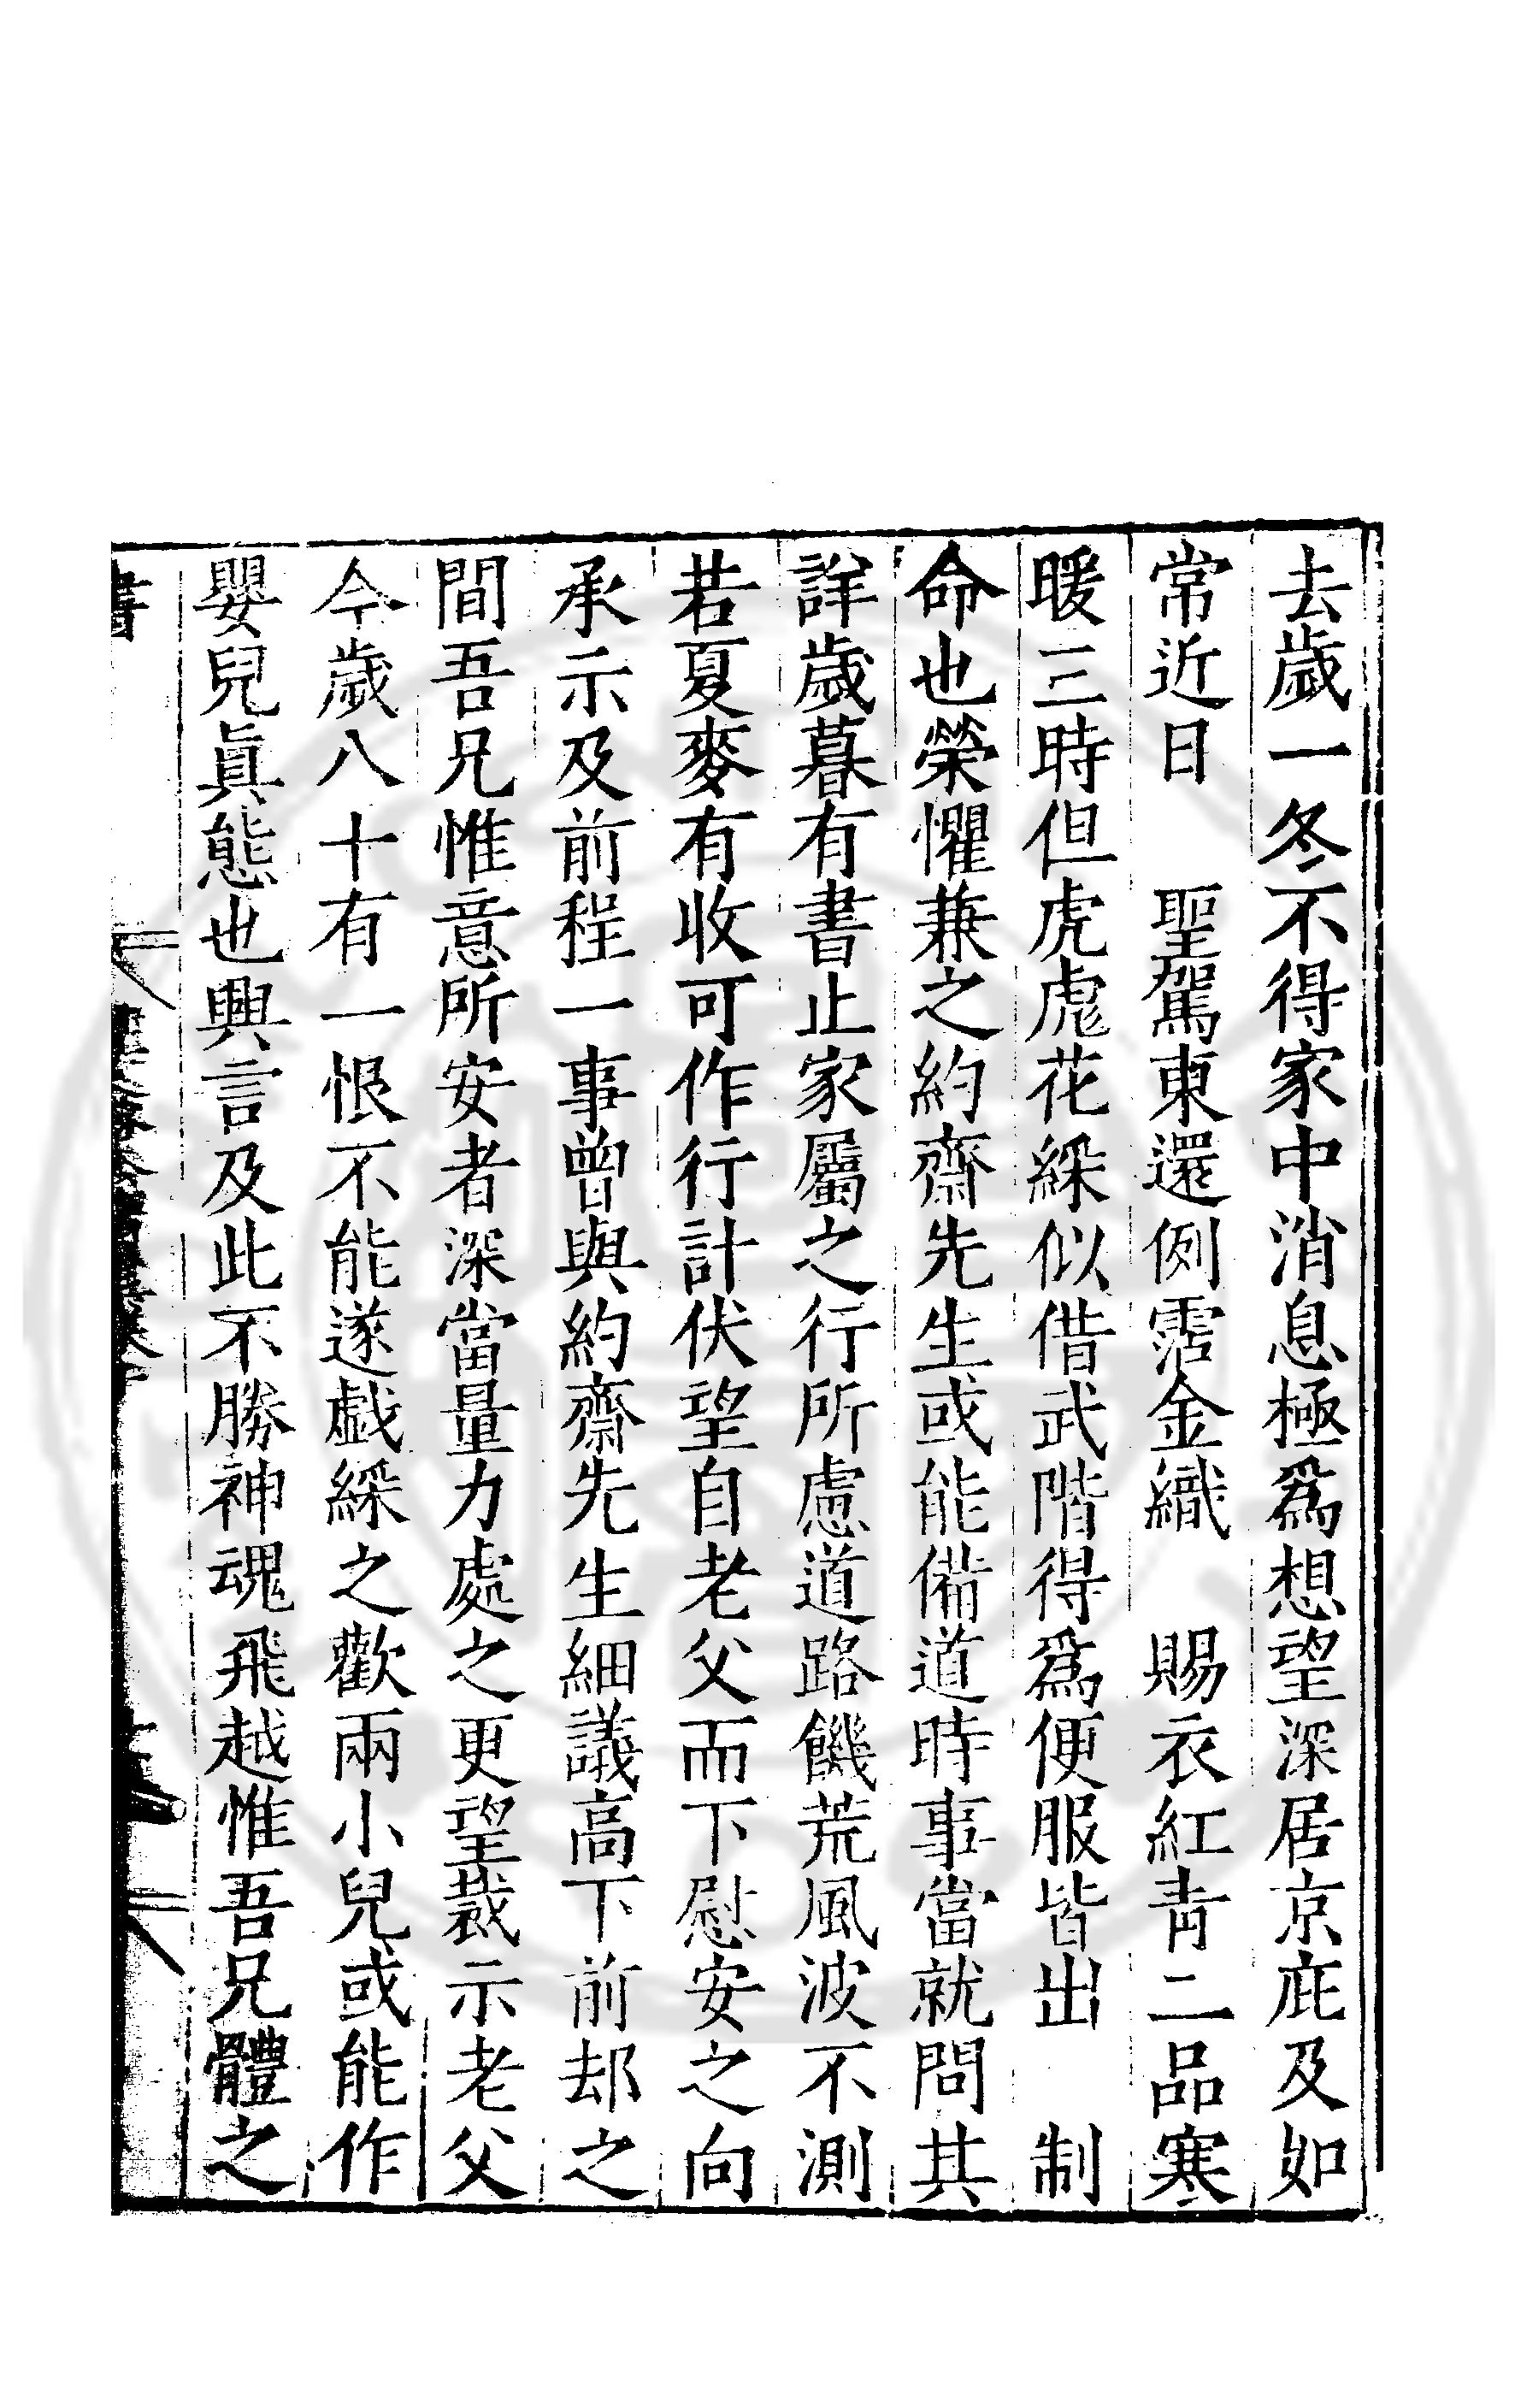 去歲一冬不得家中消息極爲想望深居京庇及如
常近日　聖駕東還例霑金織　賜衣紅青二品寒
暖三時但虎彪花綵似借武階得爲便服皆出　制
命也榮懼兼之約齋先生或能備道時事當就問其
詳歲暮有書止家屬之行所慮道路饑荒風波不測
若夏麥有收可作行計伏望自老父而下慰安之向
承示及前程一事曾與約齋先生細議高下前却之
間吾兄惟意所安者深當量力處之更望裁示老父
今歲八十有一恨不能遂戲綵之歡兩小兒或能作
嬰兒眞態也興言及此不勝神魂飛越惟吾兄體之